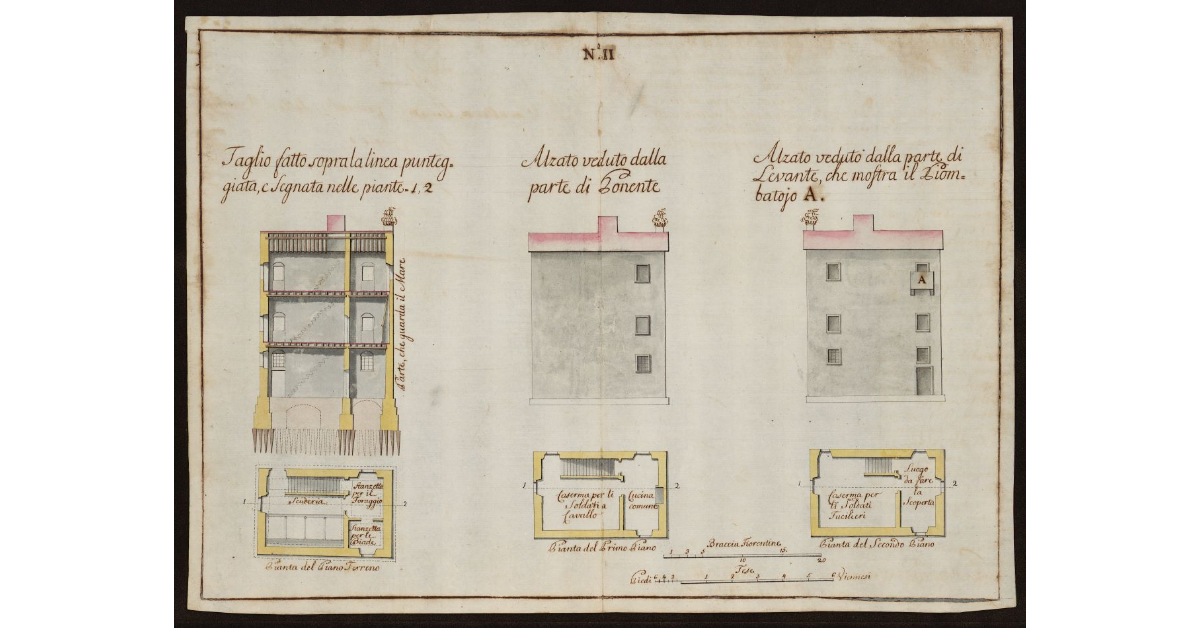 N.º II
Taglio fatto sopra la linea punteg-
giata, e Segnata nelle piante. 1. 2
Alzato veduto dalla
parte di Ponente
Alzato veduto dalla parte di
Levante, che mostra il Piom-
batojo A.
A
Parte, che guarda il Mare
1
2
Scuderia
Stanzetta
per il
Foraggio
Stanzetta
per le
Biade
Pianta del Piano Terreno
1
2
Caserma per li
Soldati a
Cavallo
Cucina
comune
Pianta del Primo Piano
1
2
Caserma per
li Soldati
Fucilieri
Luogo
da fare
la
Scoperta
Pianta del Secondo Piano
Braccia Fiorentine
1 3 5 15.
10 20
Tese
Piedi 6 4 2 1 2 3 4 5 6 Viennesi